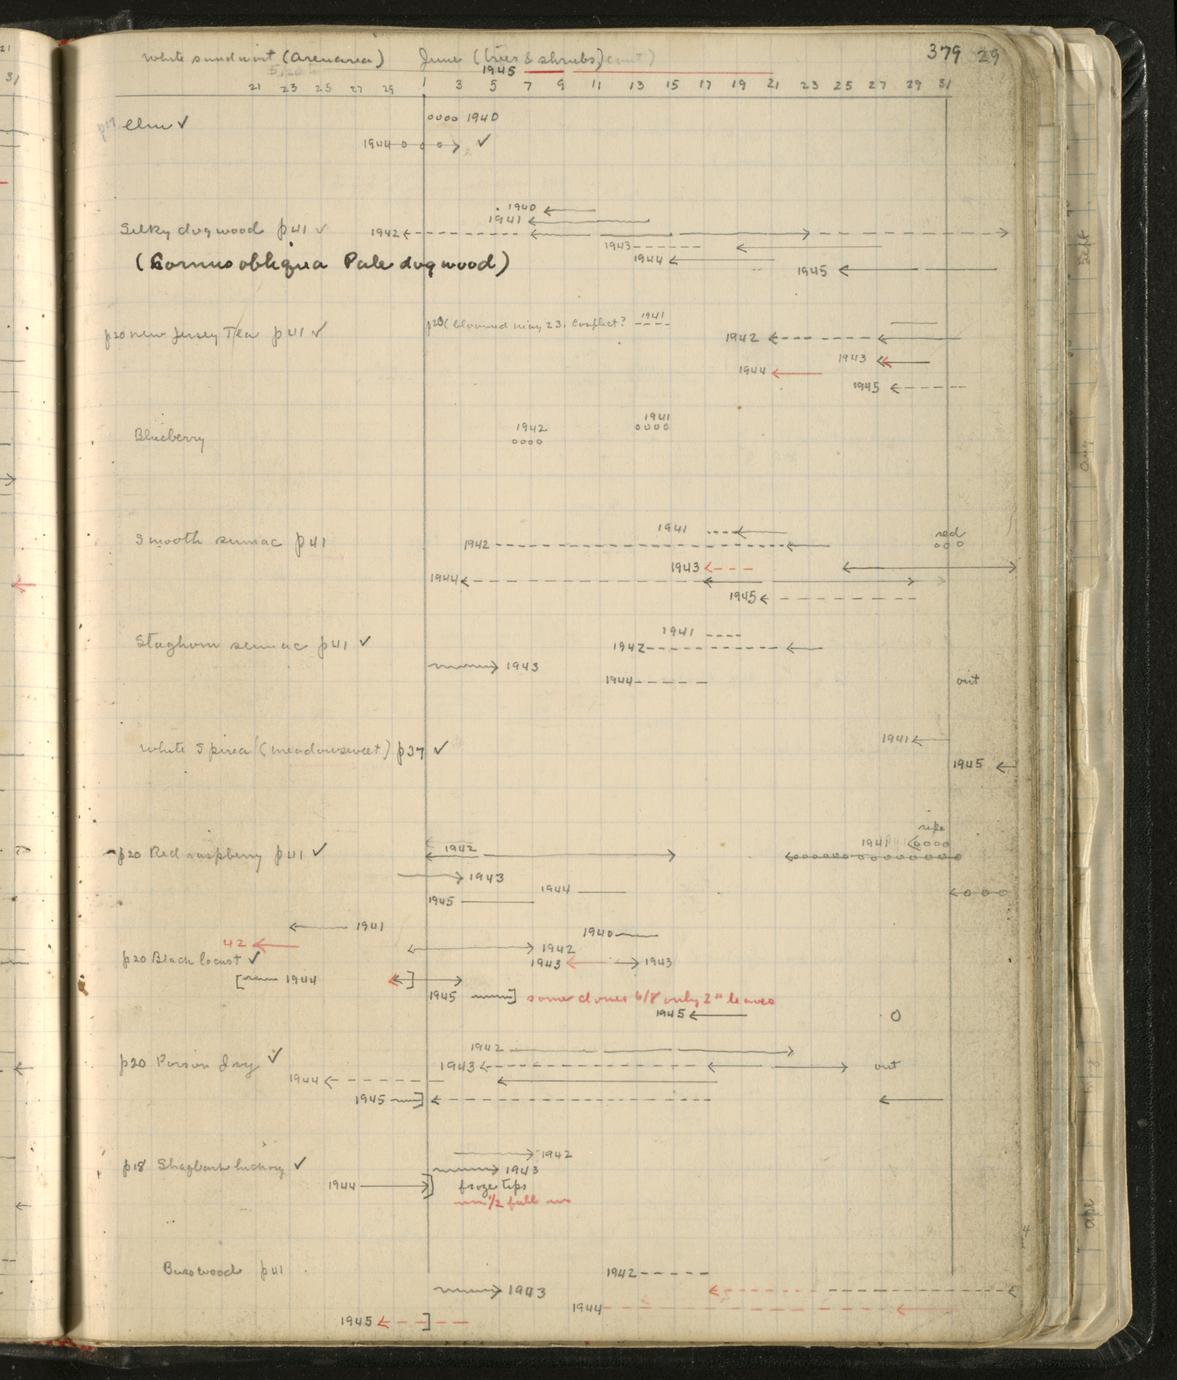 White sandwort (arenaria) June (trees & shrubs) cont) 379 29
1945
21 23 25 27 29 1 3 5 7 9 11 13 15 17 19 21 23 25 27 29 31
Elm ✓ 1940
1944 ✓
1940
1941
Silky dogwood p41 ✓ 1942
1943
(Cornus obliqua Pale dogwood) 1944
1945
p20 New Jersey Tea p41 ✓ p20 (bloomed May 23, conflict? 1941
1942
1943
1944
1945
Blueberry 1942 1941
1941 red
Smooth sumac p41 1942
1943
1944
1945
1941
Staghorn sumac p41 ✓ 1942
1943
1944 out
White Spirea (meadowsweet) p37 ✓ 1941
1945
ripe
1941
p20 Red raspberry p41 ✓ 1942
1943
1944
1945
1941
1940
42 1942
p20 Black locust ✓ 1943 1943
1944
1945 some clones 6/8 only 2" leaves
1945
1942
p20 Poison Ivy ✓ 1943 out
1944
1945
1942
p18 Shagbark hickory ✓ 1943
1944 froze tips
1/2 full
Basswood p41 1942
1943
1944
1945
Sept
Aug
Apr